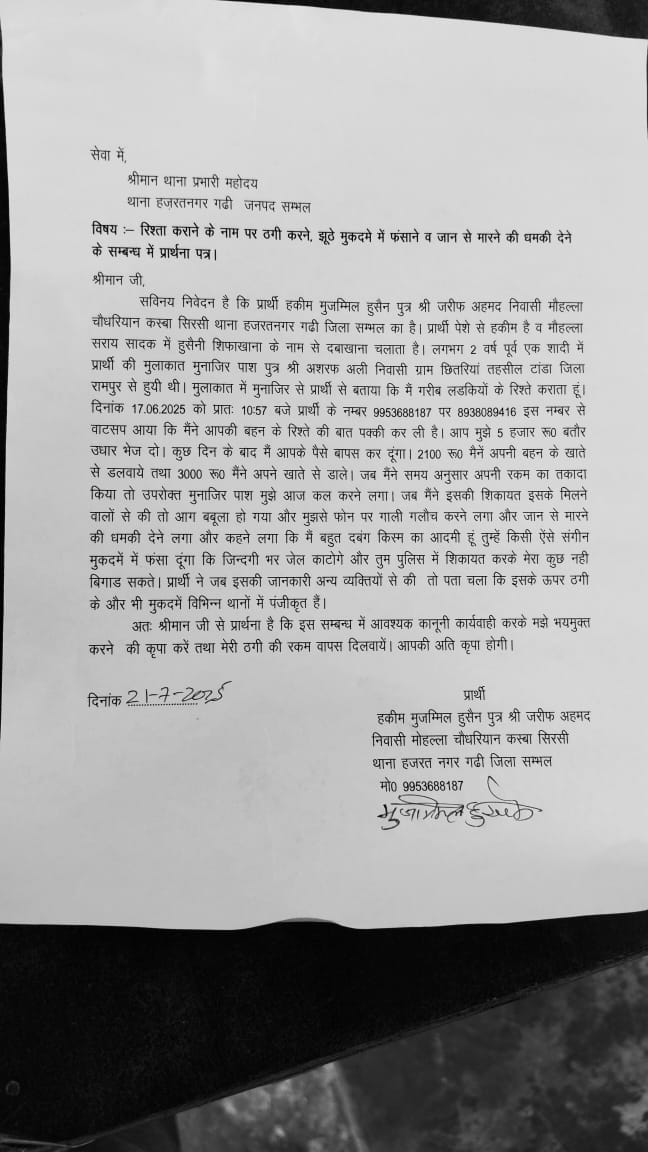 सेवा में,
श्रीमान थाना प्रभारी महोदय
थाना हज़रतनगर गढी जनपद सम्भल
विषय :– रिश्ता कराने के नाम पर ठगी करने, झूठे मुकदमे में फंसाने व जान से मारने की धमकी देने
के सम्बन्ध में प्रार्थना पत्र।
श्रीमान जी,
सविनय निवेदन है कि प्रार्थी हकीम मुजम्मिल हुसैन पुत्र श्री जरीफ अहमद निवासी मौहल्ला
चौधरियान कस्बा सिरसी थाना हजरतनगर गढी जिला सम्भल का है। प्रार्थी पेशे से हकीम है व मौहल्ला
सराय सादक में हुसैनी शिफाखाना के नाम से दबाखाना चलाता है। लगभग 2 वर्ष पूर्व एक शादी में
प्रार्थी की मुलाकात मुनाजिर पाश पुत्र श्री अशरफ अली निवासी ग्राम छितरियां तहसील टांडा जिला
रामपुर से हुयी थी। मुलाकात में मुनाजिर से प्रार्थी से बताया कि मैं गरीब लडकियों के रिश्ते कराता हूं।
दिनांक 17.06.2025 को प्रातः 10:57 बजे प्रार्थी के नम्बर 9953688187 पर 8938089416 इस नम्बर से
वाटसप आया कि मैंने आपकी बहन के रिश्ते की बात पक्की कर ली है। आप मुझे 5 हजार रू0 बतौर
उधार भेज दो। कुछ दिन के बाद मैं आपके पैसे बापस कर दूंगा। 2100 रू0 मैनें अपनी बहन के खाते
से डलवाये तथा 3000 रू0 मैंने अपने खाते से डाले। जब मैंने समय अनुसार अपनी रकम का तकादा
किया तो उपरोक्त मुनाजिर पाश मुझे आज कल करने लगा। जब मैंने इसकी शिकायत इसके मिलने
वालों से की तो आग बबूला हो गया और मुझसे फोन पर गाली गलौच करने लगा और जान से मारने
की धमकी देने लगा और कहने लगा कि मैं बहुत दबंग किस्म का आदमी हूं तुम्हें किसी ऐंसे संगीन
मुकदमें में फंसा दूंगा कि जिन्दगी भर जेल काटोगे और तुम पुलिस में शिकायत करके मेरा कुछ नही
बिगाड सकते। प्रार्थी ने जब इसकी जानकारी अन्य व्यक्तियों से की तो पता चला कि इसके ऊपर ठगी
के और भी मुकदमें विभिन्न थानों में पंजीकृत हैं।
अतः श्रीमान जी से प्रार्थना है कि इस सम्बन्ध में आवश्यक कानूनी कार्यवाही करके मझे भयमुक्त
करने की कृपा करें तथा मेरी ठगी की रकम वापस दिलवायें। आपकी अति कृपा होगी।
दिनांक 21-7-2025
प्रार्थी
हकीम मुजम्मिल हुसैन पुत्र श्री जरीफ अहमद
निवासी मोहल्ला चौधरियान कस्बा सिरसी
थाना हजरत नगर गढी जिला सम्भल
मो0 9953688187
मुजम्मिल हुसैन